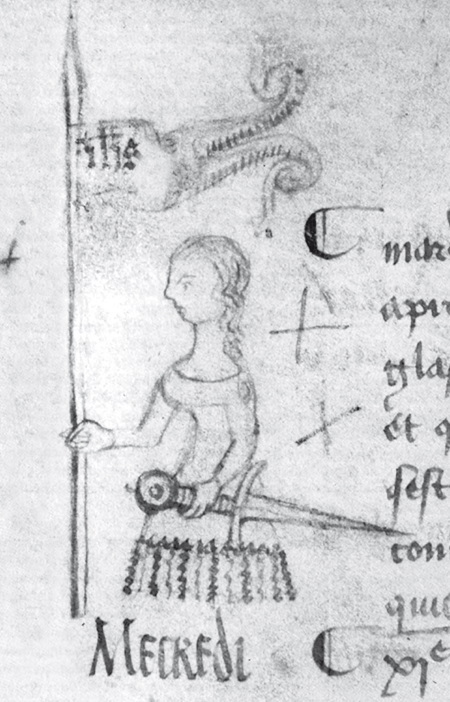 ihs
C
mar
apr
gla
et q
sest
com
qui
Mecredi
C xje